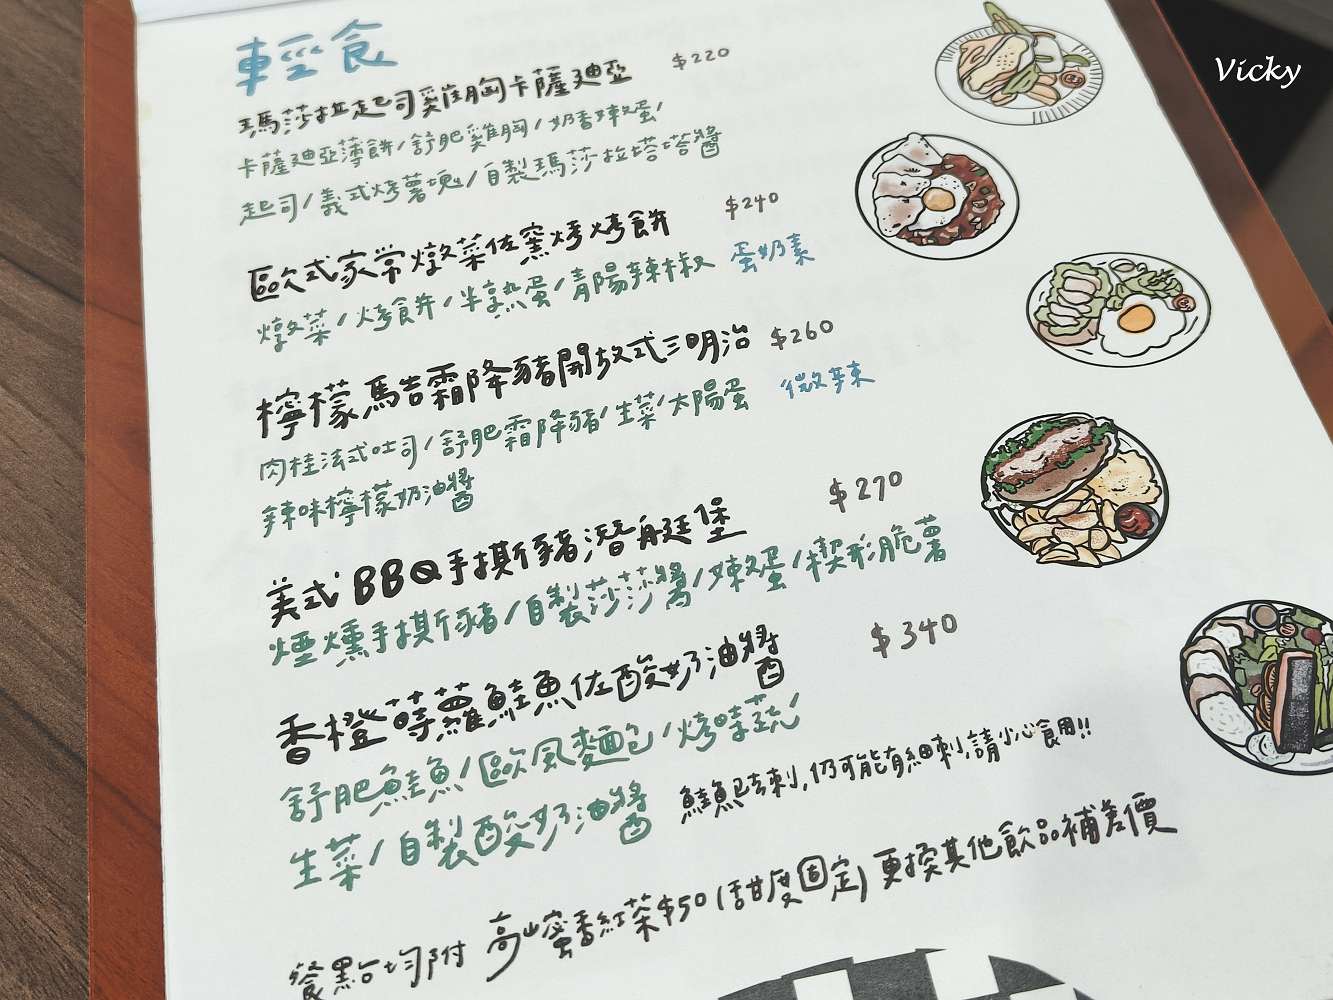 輕食
瑪莎拉起司雞胸卡薩迪亞 $220
卡薩迪亞薄餅/舒肥雞胸/奶香嫩蛋/
起司/義式烤薯塊/自製瑪莎拉塔塔醬
歐式家常燉菜佐窯烤烤餅 $240
燉菜/烤餅/半熟蛋/青陽辣椒 蛋奶素
檸檬馬告霜降豬開放式三明治 $260
肉桂法式吐司/舒肥霜降豬/生菜/太陽蛋 微辣
辣味檸檬奶油醬
美式BBQ手撕豬潛艇堡 $270
煙燻手撕豬/自製莎莎醬/嫩蛋/楔形脆薯
香橙蒔蘿鮭魚佐酸奶油醬 $340
舒肥鮭魚/歐風麵包/烤時蔬/
生菜/自製酸奶油醬 鮭魚已去刺,仍可能有細刺,請小心食用!!
餐點均附 高山蜜香紅茶$50(甜度固定) 更換其他飲品補差價
Vicky